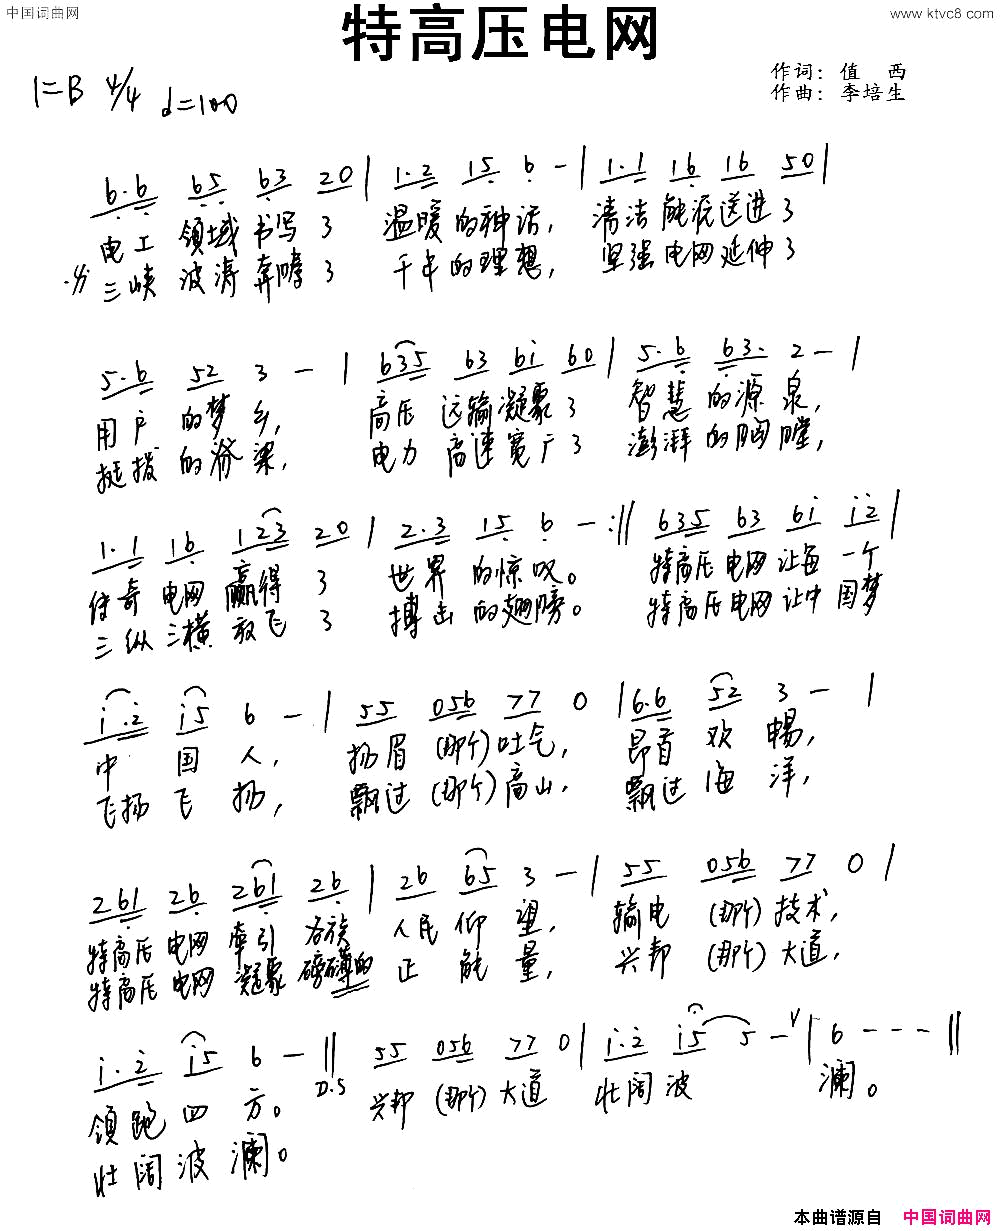 中国词曲网
www.ktvc8.com
特高压电网
作词：值 西
作曲：李培生
1=B 4/4 d=100
6·6 65 63 20 | 1·2 15 6 - | 1·1 16 16 50 |
电工 领域 书写 了 温暖 的神话， 清洁 能源 送进 了
三峡 波涛 奔嗥 了 千年 的理想， 坚强 电网 延伸 了
5·6 52 3 - | 635 63 6i 60 | 5·6 63· 2 - |
用户 的梦 乡， 高压 运输 凝聚 了 智慧 的源 泉，
挺拔 的脊 梁， 电力 高速 宽广 了 澎湃 的胸 膛，
1·1 16 123 20 | 2·3 15 6 - :|| 635 63 6i i2 |
传奇 电网 赢得 了 世界 的惊 叹。 特高压 电网 让每 一个
三纵 三横 放飞 了 搏击 的翅 膀。 特高压 电网 让中 国梦
i·2 i5 6 - | 55 056 77 0 | 6·6 52 3 - |
中 国 人， 扬眉 (那个) 吐气， 昂首 欢 畅，
飞扬 飞 扬， 飘过 (那个) 高山， 飘过 海 洋，
261 26 261 26 | 26 65 3 - | 55 056 77 0 |
特高压 电网 牵引 各族 人民 仰 望， 输电 (那个) 技术，
特高压 电网 凝聚 磅礴的 正 能 量， 兴邦 (那个) 大道，
i·2 i5 6 - || D.S 55 056 77 0 | i·2 i5 5 - | 6 - - - ||
领跑 四 方。 兴邦 (那个) 大道 壮阔 波 澜。
壮阔 波 澜。
本曲谱源自 中国词曲网